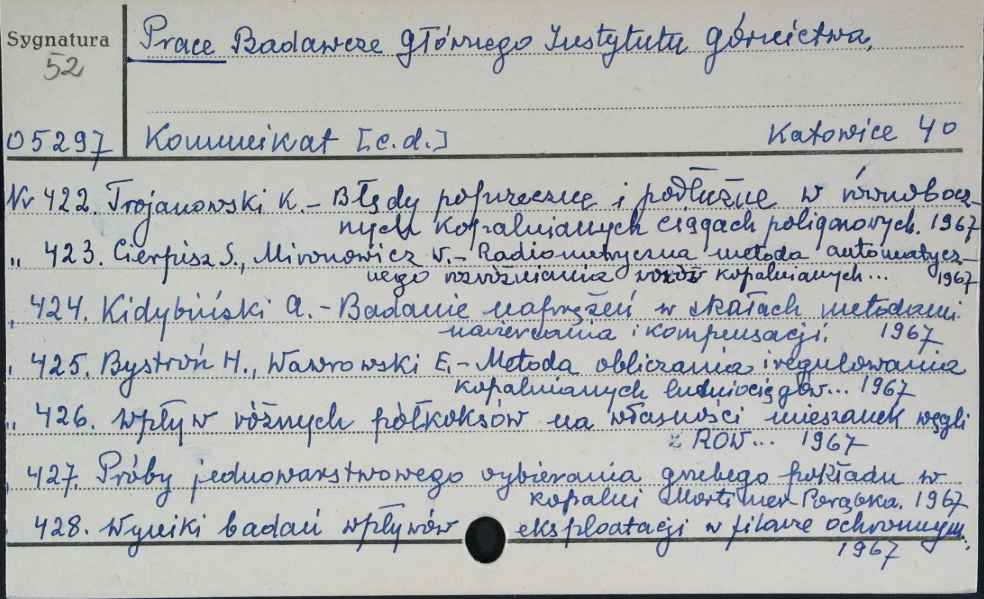 Sygnatura Prace Badawcze Głównego Instytutu Górnictwa,
52
05297 Komunikat [c.d.] Katowice 40
Nr 422. Trojanowski K. - Błędy poprzeczne i podłużne w równobocz-
nych kopalnianych ciągach poligonowych. 1967
" 423. Cierpisz S., Mironowicz W. - Radiometryczna metoda automatycz-
nego rozróżniania wozów kopalnianych... 1967
" 424. Kidybiński A. - Badanie naprężeń w skałach metodami
nawiercania i kompensacji. 1967
" 425. Bystroń H., Wawrowski E. - Metoda obliczania i regulowania
kopalnianych lutniociągów... 1967
" 426. Wpływ różnych półkoksów na własności mieszanek węgli
z ROW... 1967
" 427. Próby jednowarstwowego wybierania grubego pokładu w
kopalni Mortimer-Porąbka. 1967
" 428. Wyniki badań wpływów eksploatacji w filarze ochronnym..
1967